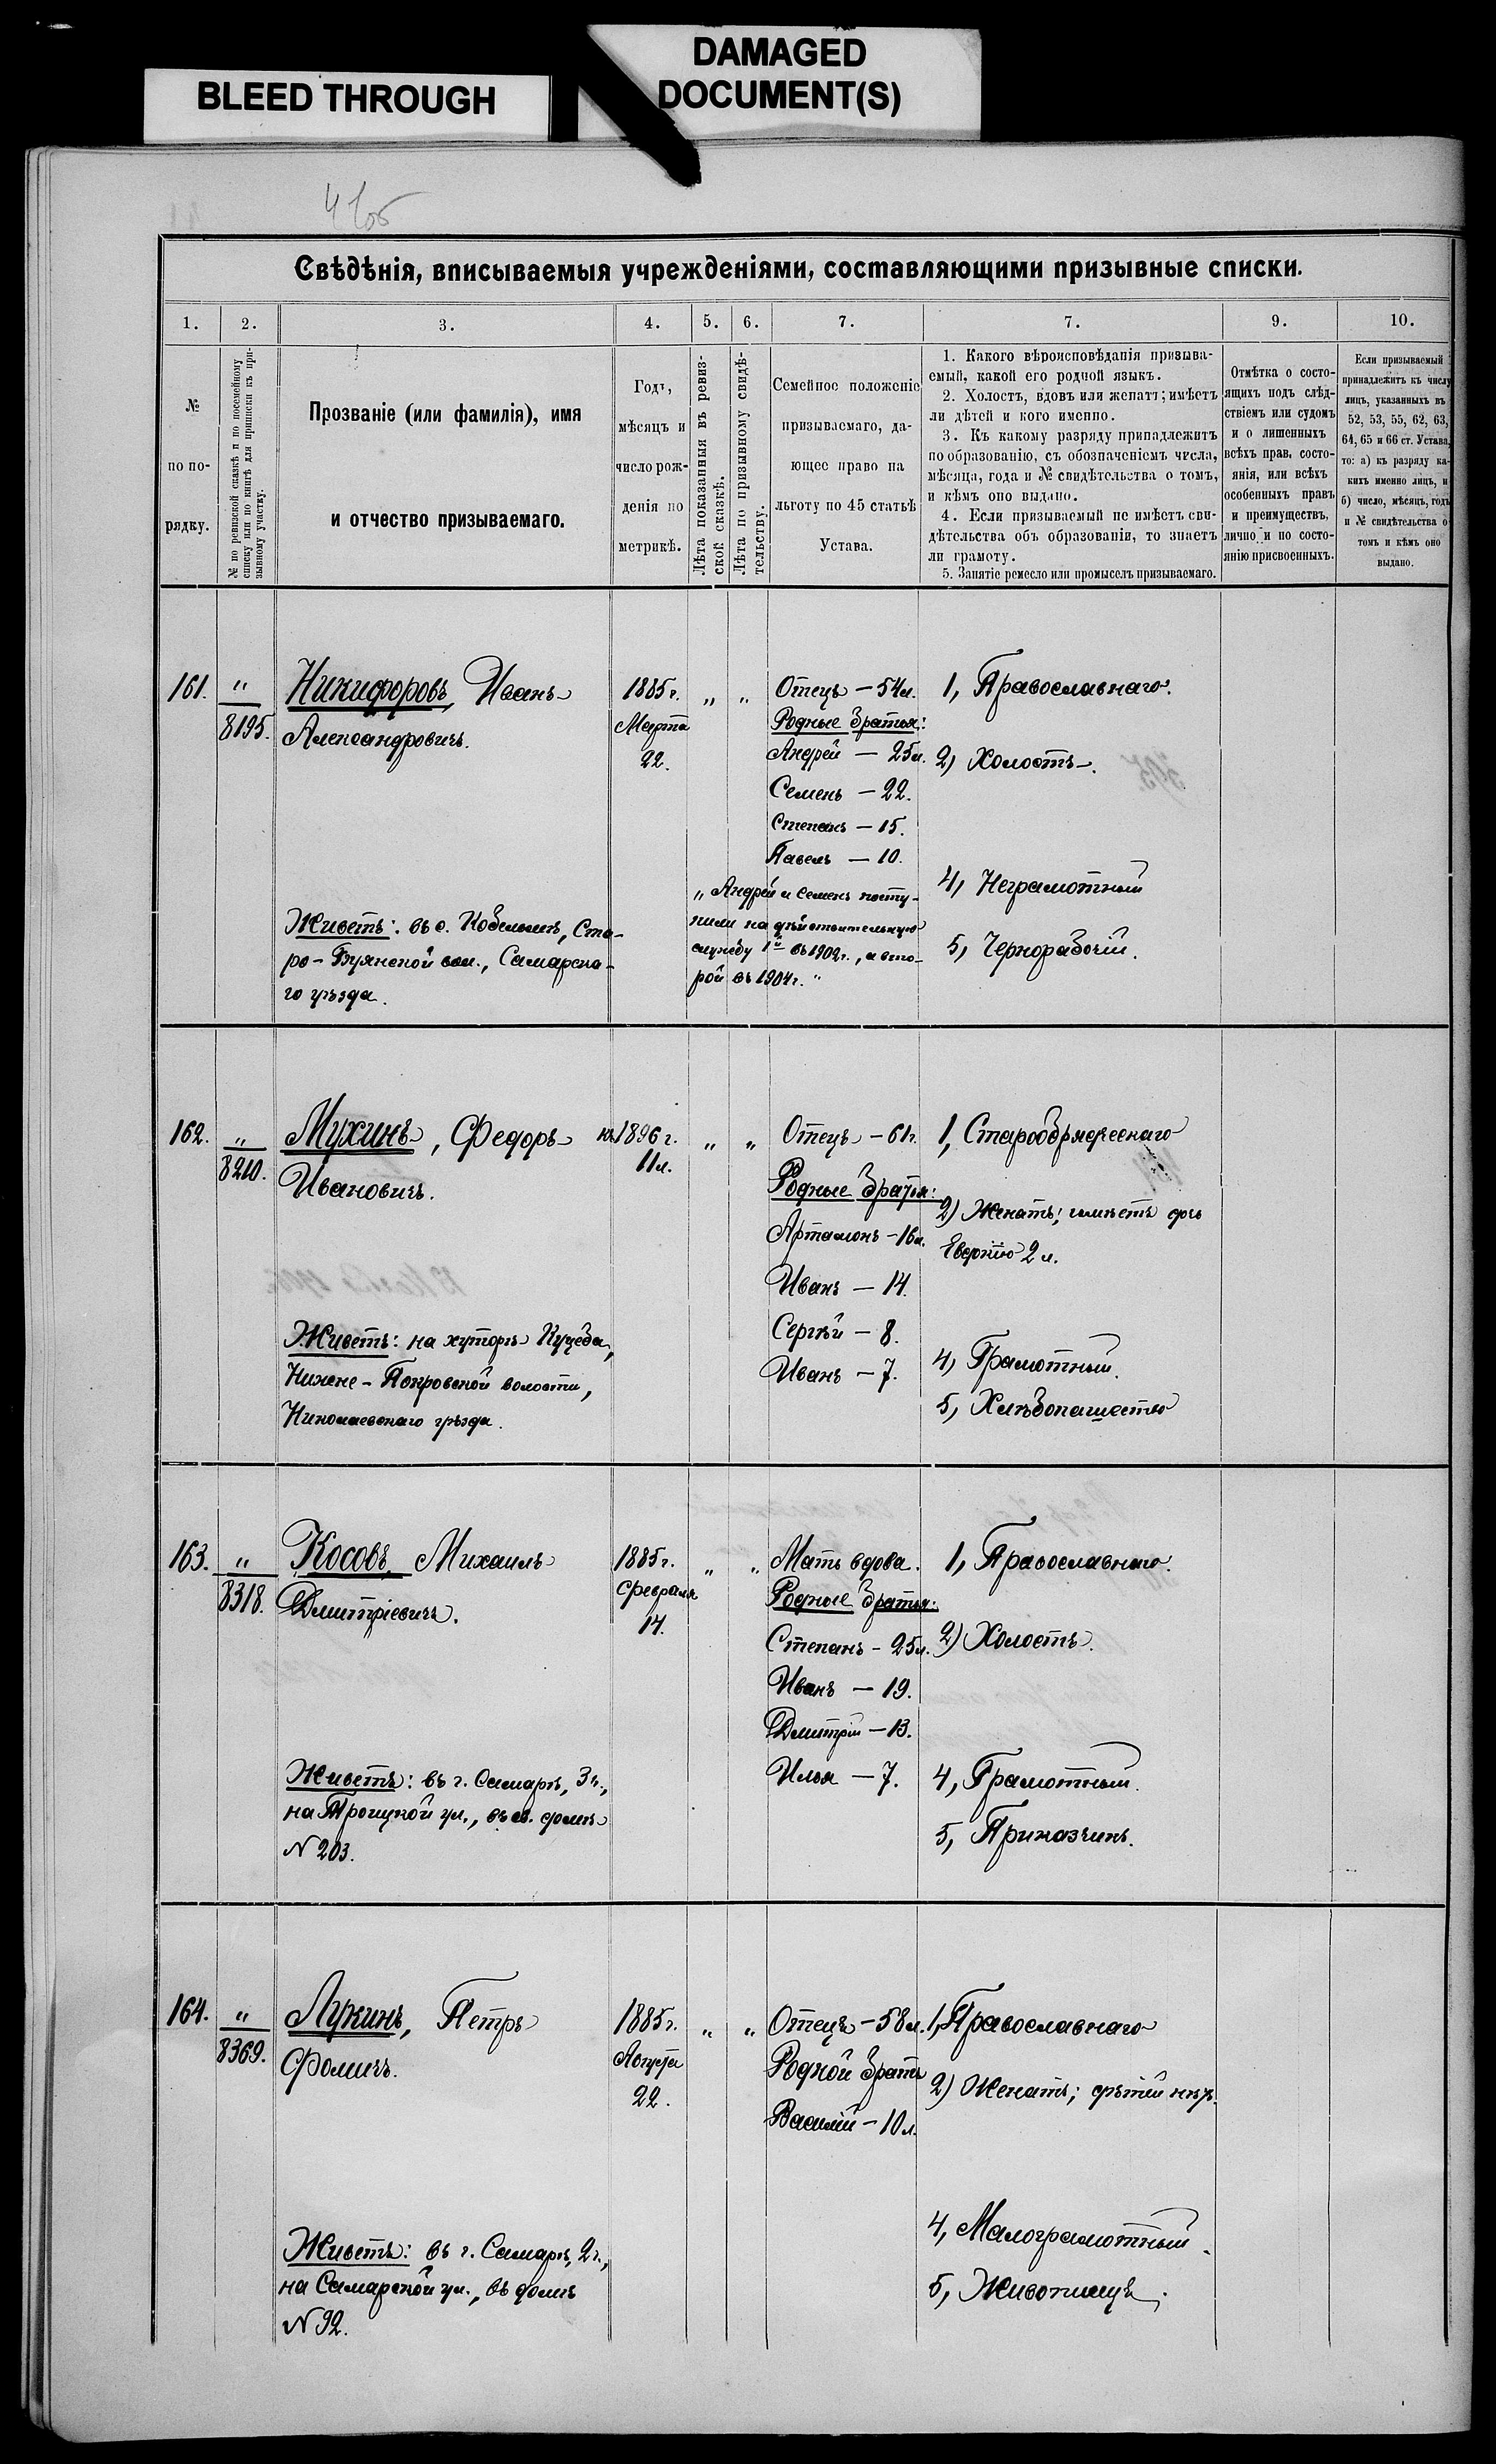 BLEED THROUGH
DAMAGED
DOCUMENT(S)
Свѣдѣнія, вписываемыя учрежденіями, составляющими призывные списки.
1.
2.
3.
4.
5.
6.
7.
7.
9.
10.
№
по по-
рядку.
№ по ревизской сказкѣ и по посемейному
списку или по книгѣ для приписки къ при-
зывному участку.
Прозваніе (или фамилія), имя
и отчество призываемаго.
Годъ,
мѣсяцъ и
число рож-
денія по
метрикѣ.
Лѣта показанныя въ ревиз-
ской сказкѣ.
Лѣта по призывному свидѣ-
тельству.
Семейное положеніе
призываемаго, да-
ющее право на
льготу по 45 статьѣ
Устава.
1. Какого вѣроисповѣданія призыва-
емый, какой его родной языкъ.
2. Холостъ, вдовъ или женатъ; имѣетъ
ли дѣтей и кого именно.
3. Къ какому разряду принадлежитъ
по образованію, съ обозначеніемъ числа,
мѣсяца, года и № свидѣтельства о томъ,
и кѣмъ оно выдано.
4. Если призываемый не имѣетъ сви-
дѣтельства объ образованіи, то знаетъ
ли грамоту.
5. Занятіе ремесло или промыселъ призываемаго.
Отмѣтка о состо-
ящихъ подъ слѣд-
ствіемъ или судомъ
и о лишенныхъ
всѣхъ прав, состо-
янія, или всѣхъ
особенныхъ правъ
и преимуществъ,
лично и по состо-
янію присвоенныхъ.
Если призываемый
принадлежитъ къ числу
лицъ, указанныхъ въ
52, 53, 55, 62, 63,
64, 65 и 66 ст. Устава,
то: а) къ разряду ка-
кихъ именно лицъ, и
б) число, мѣсяцъ, годъ
и № свидѣтельства о
томъ и кѣмъ оно
выдано.
161.
"
8195.
Никифоровъ, Иванъ
Александровичъ.
Живетъ: въ с. Кобельмѣ, Ста-
ро-Буянской вол., Самарска-
го уѣзда.
1885 г.
Марта
22.
" "
Отецъ – 54 л.
Родные братья:
Андрей – 25 л.
Семенъ – 22.
Степанъ – 15.
Павелъ – 10.
" Андрей и Семенъ посту-
пили на дѣйствительную
службу 1й въ 1902 г., а вто-
рой въ 1904 г. "
1, Православнаго.
2) Холостъ.
4, Неграмотный
5, Чернорабочій.
162.
"
8210.
Мухинъ, Федоръ
Ивановичъ.
Живетъ: на хуторѣ Куцеба,
Нижне-Покровской волости,
Николаевскаго уѣзда.
къ 1896 г.
11 л.
" "
Отецъ – 61 г.
Родные братья:
Артамонъ – 16 л.
Иванъ – 14.
Сергѣй – 8.
Иванъ – 7.
1, Старообрядческаго
2) Женатъ; имѣетъ дчь
2 л.
4, Грамотный.
5, Хлѣбопашество
163.
"
8318.
Косовъ, Михаилъ
Дмитріевичъ.
Живетъ: въ г. Самарѣ, 3 ч.,
на Троицкой ул., въ св. домѣ
N 203.
1885 г.
Февраля
14.
" "
Мать вдова.
Родные братья:
Степанъ – 25 л.
Иванъ – 19.
Дмитрій – 13.
Илья – 7.
1, Православнаго.
2) Холостъ.
4, Грамотный.
5, Приказчикъ.
164.
"
8369.
Лукинъ, Петръ
Фомичъ.
Живетъ: въ г. Самарѣ, 2 ч.,
на Самарской ул., въ домѣ
N 92.
1885 г.
Августа
22.
" "
Отецъ – 58 л.
Родной братъ
Василій – 10 л.
1, Православнаго
2) Женатъ; дѣтей нѣтъ.
4, Малограмотный.
5, Живописецъ.